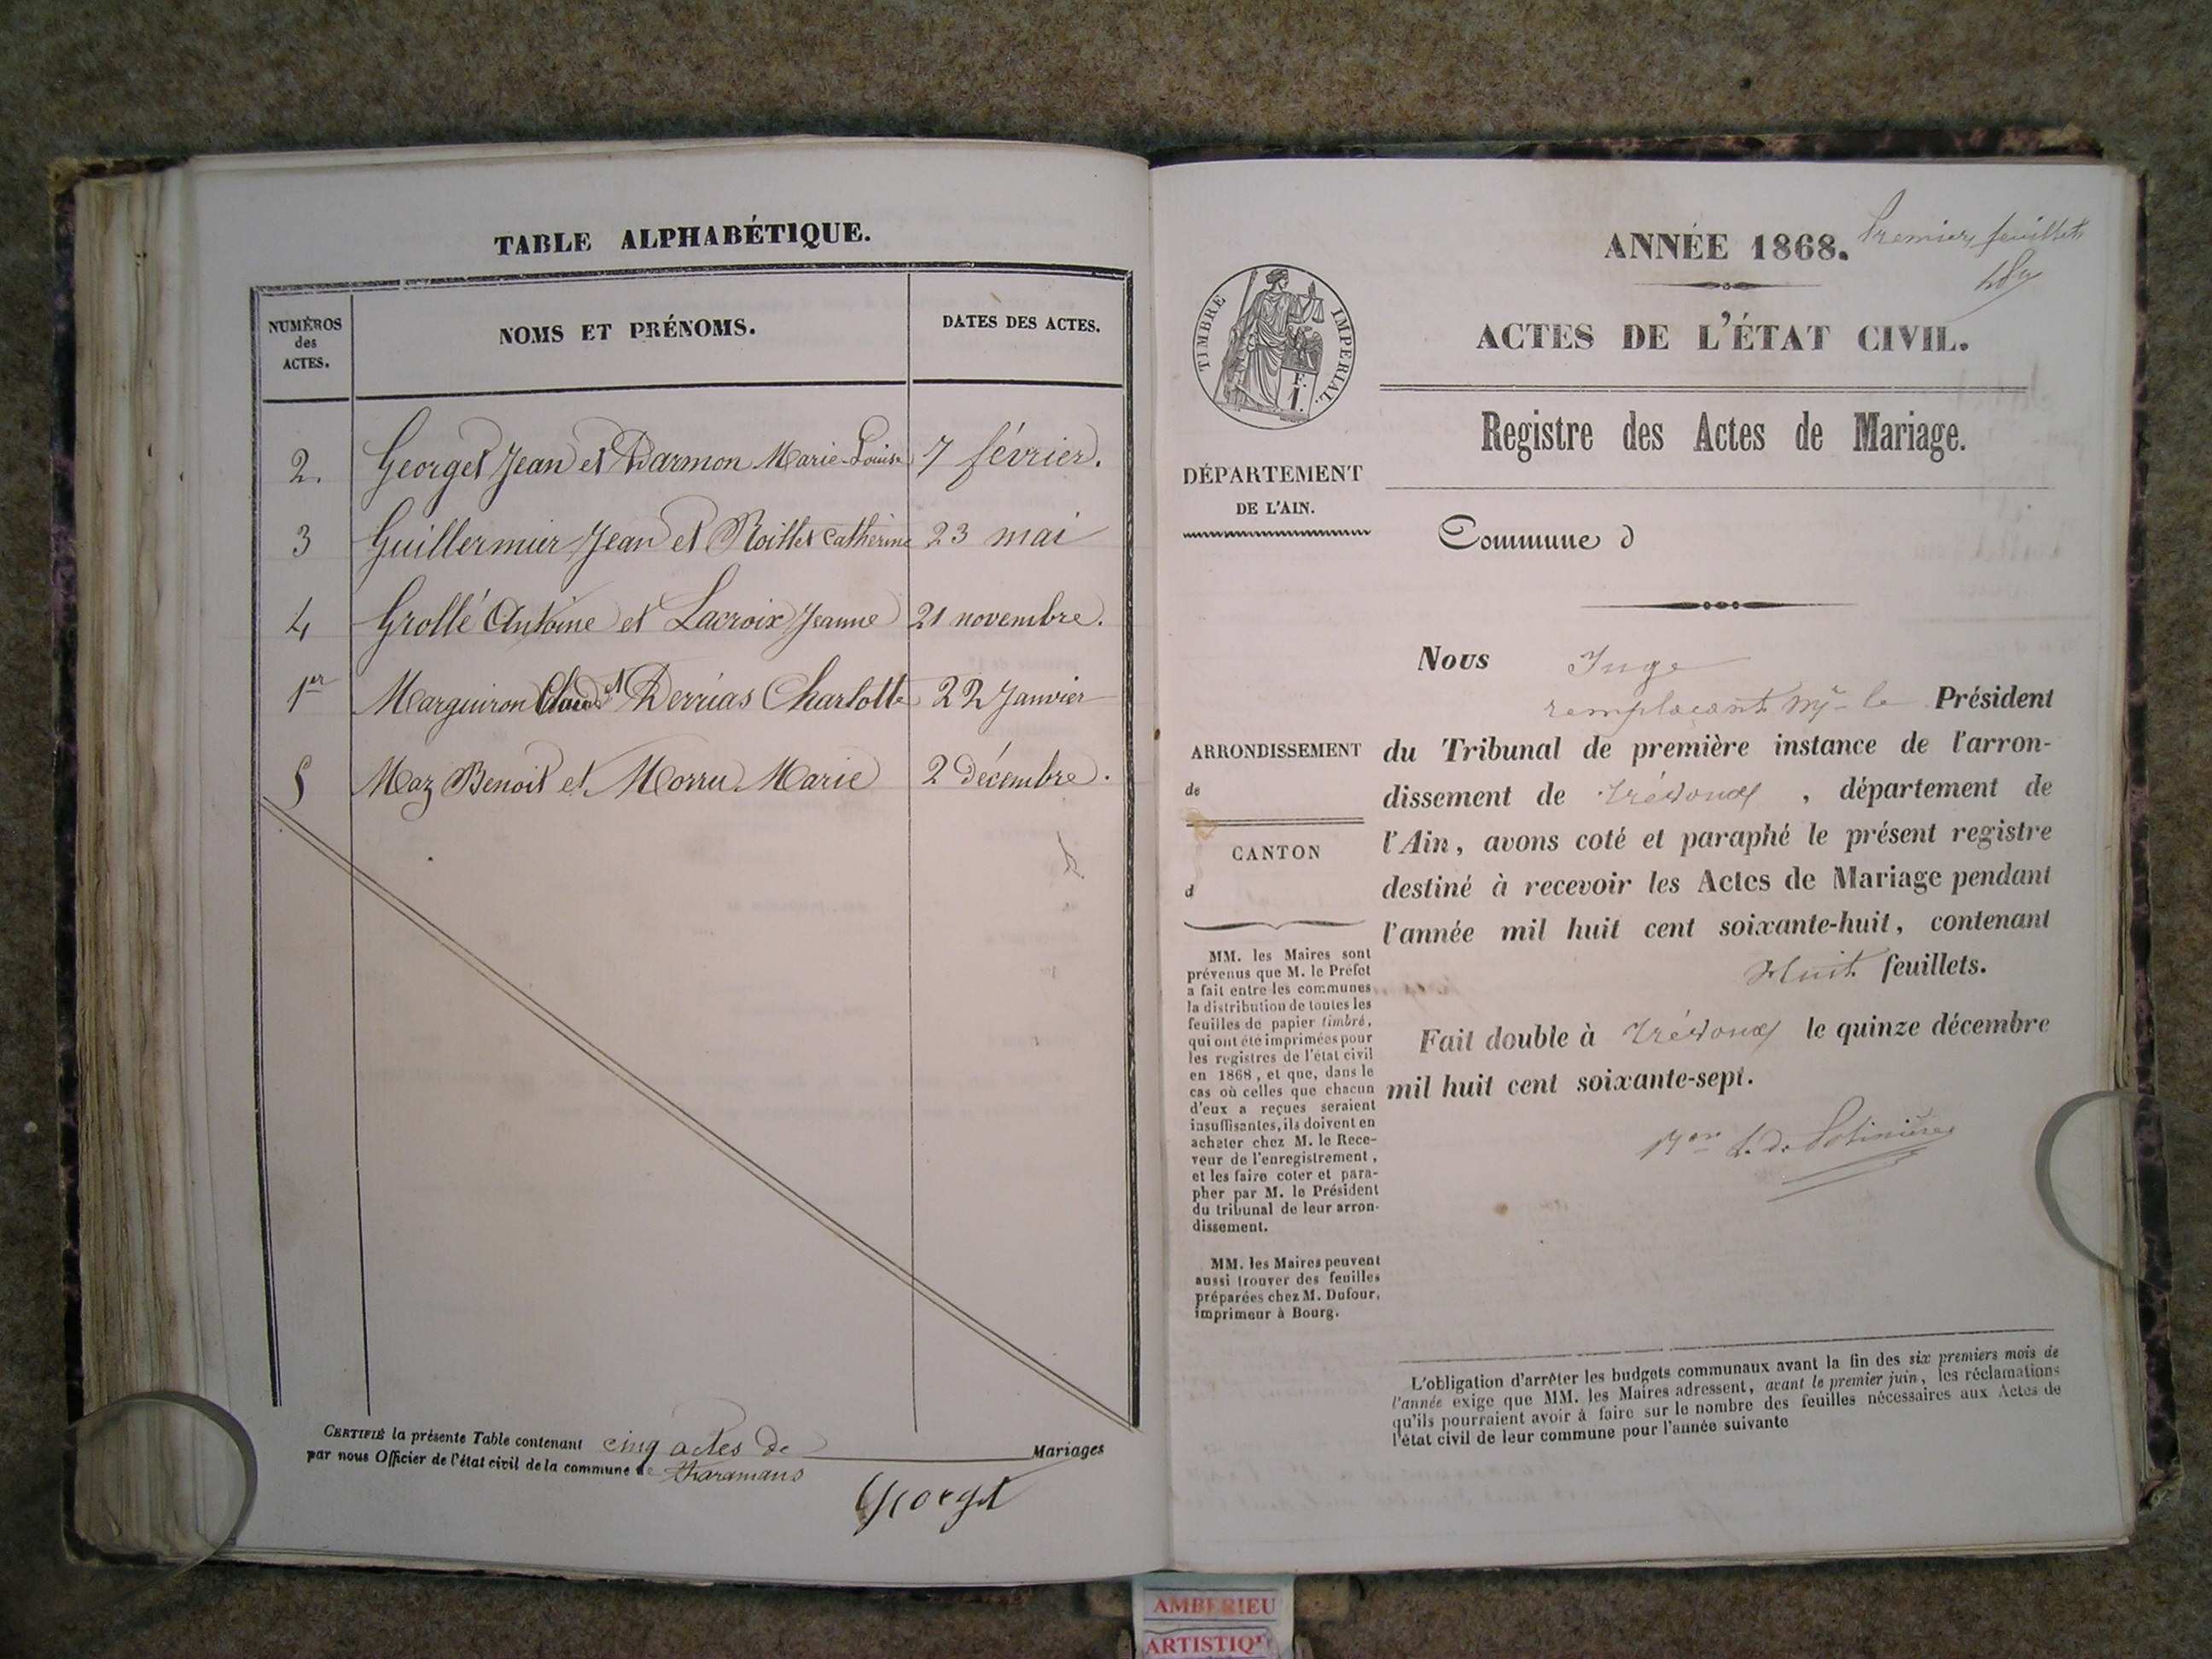 TABLE ALPHABÉTIQUE.
NUMÉROS des ACTES.
NOMS ET PRÉNOMS.
DATES DES ACTES.
2. Georget Jean et Darmon Marie-Louise 7 février.
3 Guillermier Jean et Roillet Catherine 23 mai
4 Grollé Antoine et Lacroix Jeanne 21 novembre.
1er Marguiron Claude et Derrias Charlotte 22 Janvier
5 Maz Benoit et Morru Marie 2 décembre.
CERTIFIÉ la présente Table contenant cinq actes de Mariages
par nous Officier de l'état civil de la commune de Faramans
Georget
Premier feuillet
ANNÉE 1868.
ACTES DE L'ÉTAT CIVIL.
TIMBRE IMPERIAL.
F.
1.
Registre des Actes de Mariage.
DÉPARTEMENT
DE L'AIN.
Commune d
Nous Juge
remplacant Mr le Président
ARRONDISSEMENT
de
CANTON
d
du Tribunal de première instance de l'arron-
dissement de Trévoux , département de
l'Ain, avons coté et paraphé le présent registre
destiné à recevoir les Actes de Mariage pendant
l'année mil huit cent soixante-huit, contenant
Huit feuillets.
Fait double à Trévoux le quinze décembre
mil huit cent soixante-sept.
MM. les Maires sont
prévenus que M. le Préfet
a fait entre les communes
la distribution de toutes les
feuilles de papier timbré,
qui ont été imprimées pour
les registres de l'état civil
en 1868, et que, dans le
cas où celles que chacun
d'eux a reçues seraient
insuffisantes, ils doivent en
acheter chez M. le Rece-
veur de l'enregistrement,
et les faire coter et para-
pher par M. le Président
du tribunal de leur arron-
dissement.
MM. les Maires peuvent
aussi trouver des feuilles
préparées chez M. Dufour,
imprimeur à Bourg.
L'obligation d'arrêter les budgets communaux avant la fin des six premiers mois de
l'année exige que MM. les Maires adressent, avant le premier juin, les réclamations
qu'ils pourraient avoir à faire sur le nombre des feuilles nécessaires aux Actes de
l'état civil de leur commune pour l'année suivante
AMBERIEU
ARTISTIQUE